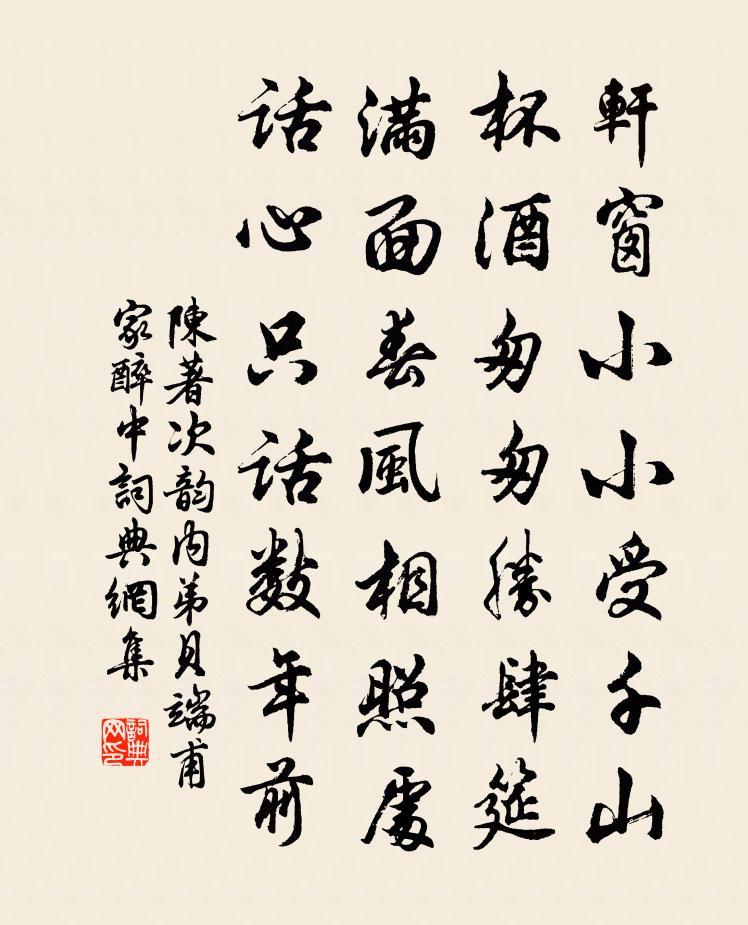 軒窗小小受千山
杯酒匆匆勝肆筵
滿面春風相照處
話心只話數年前
陳著次韵内弟貝端甫
家醉中詞典網集
詞典網印